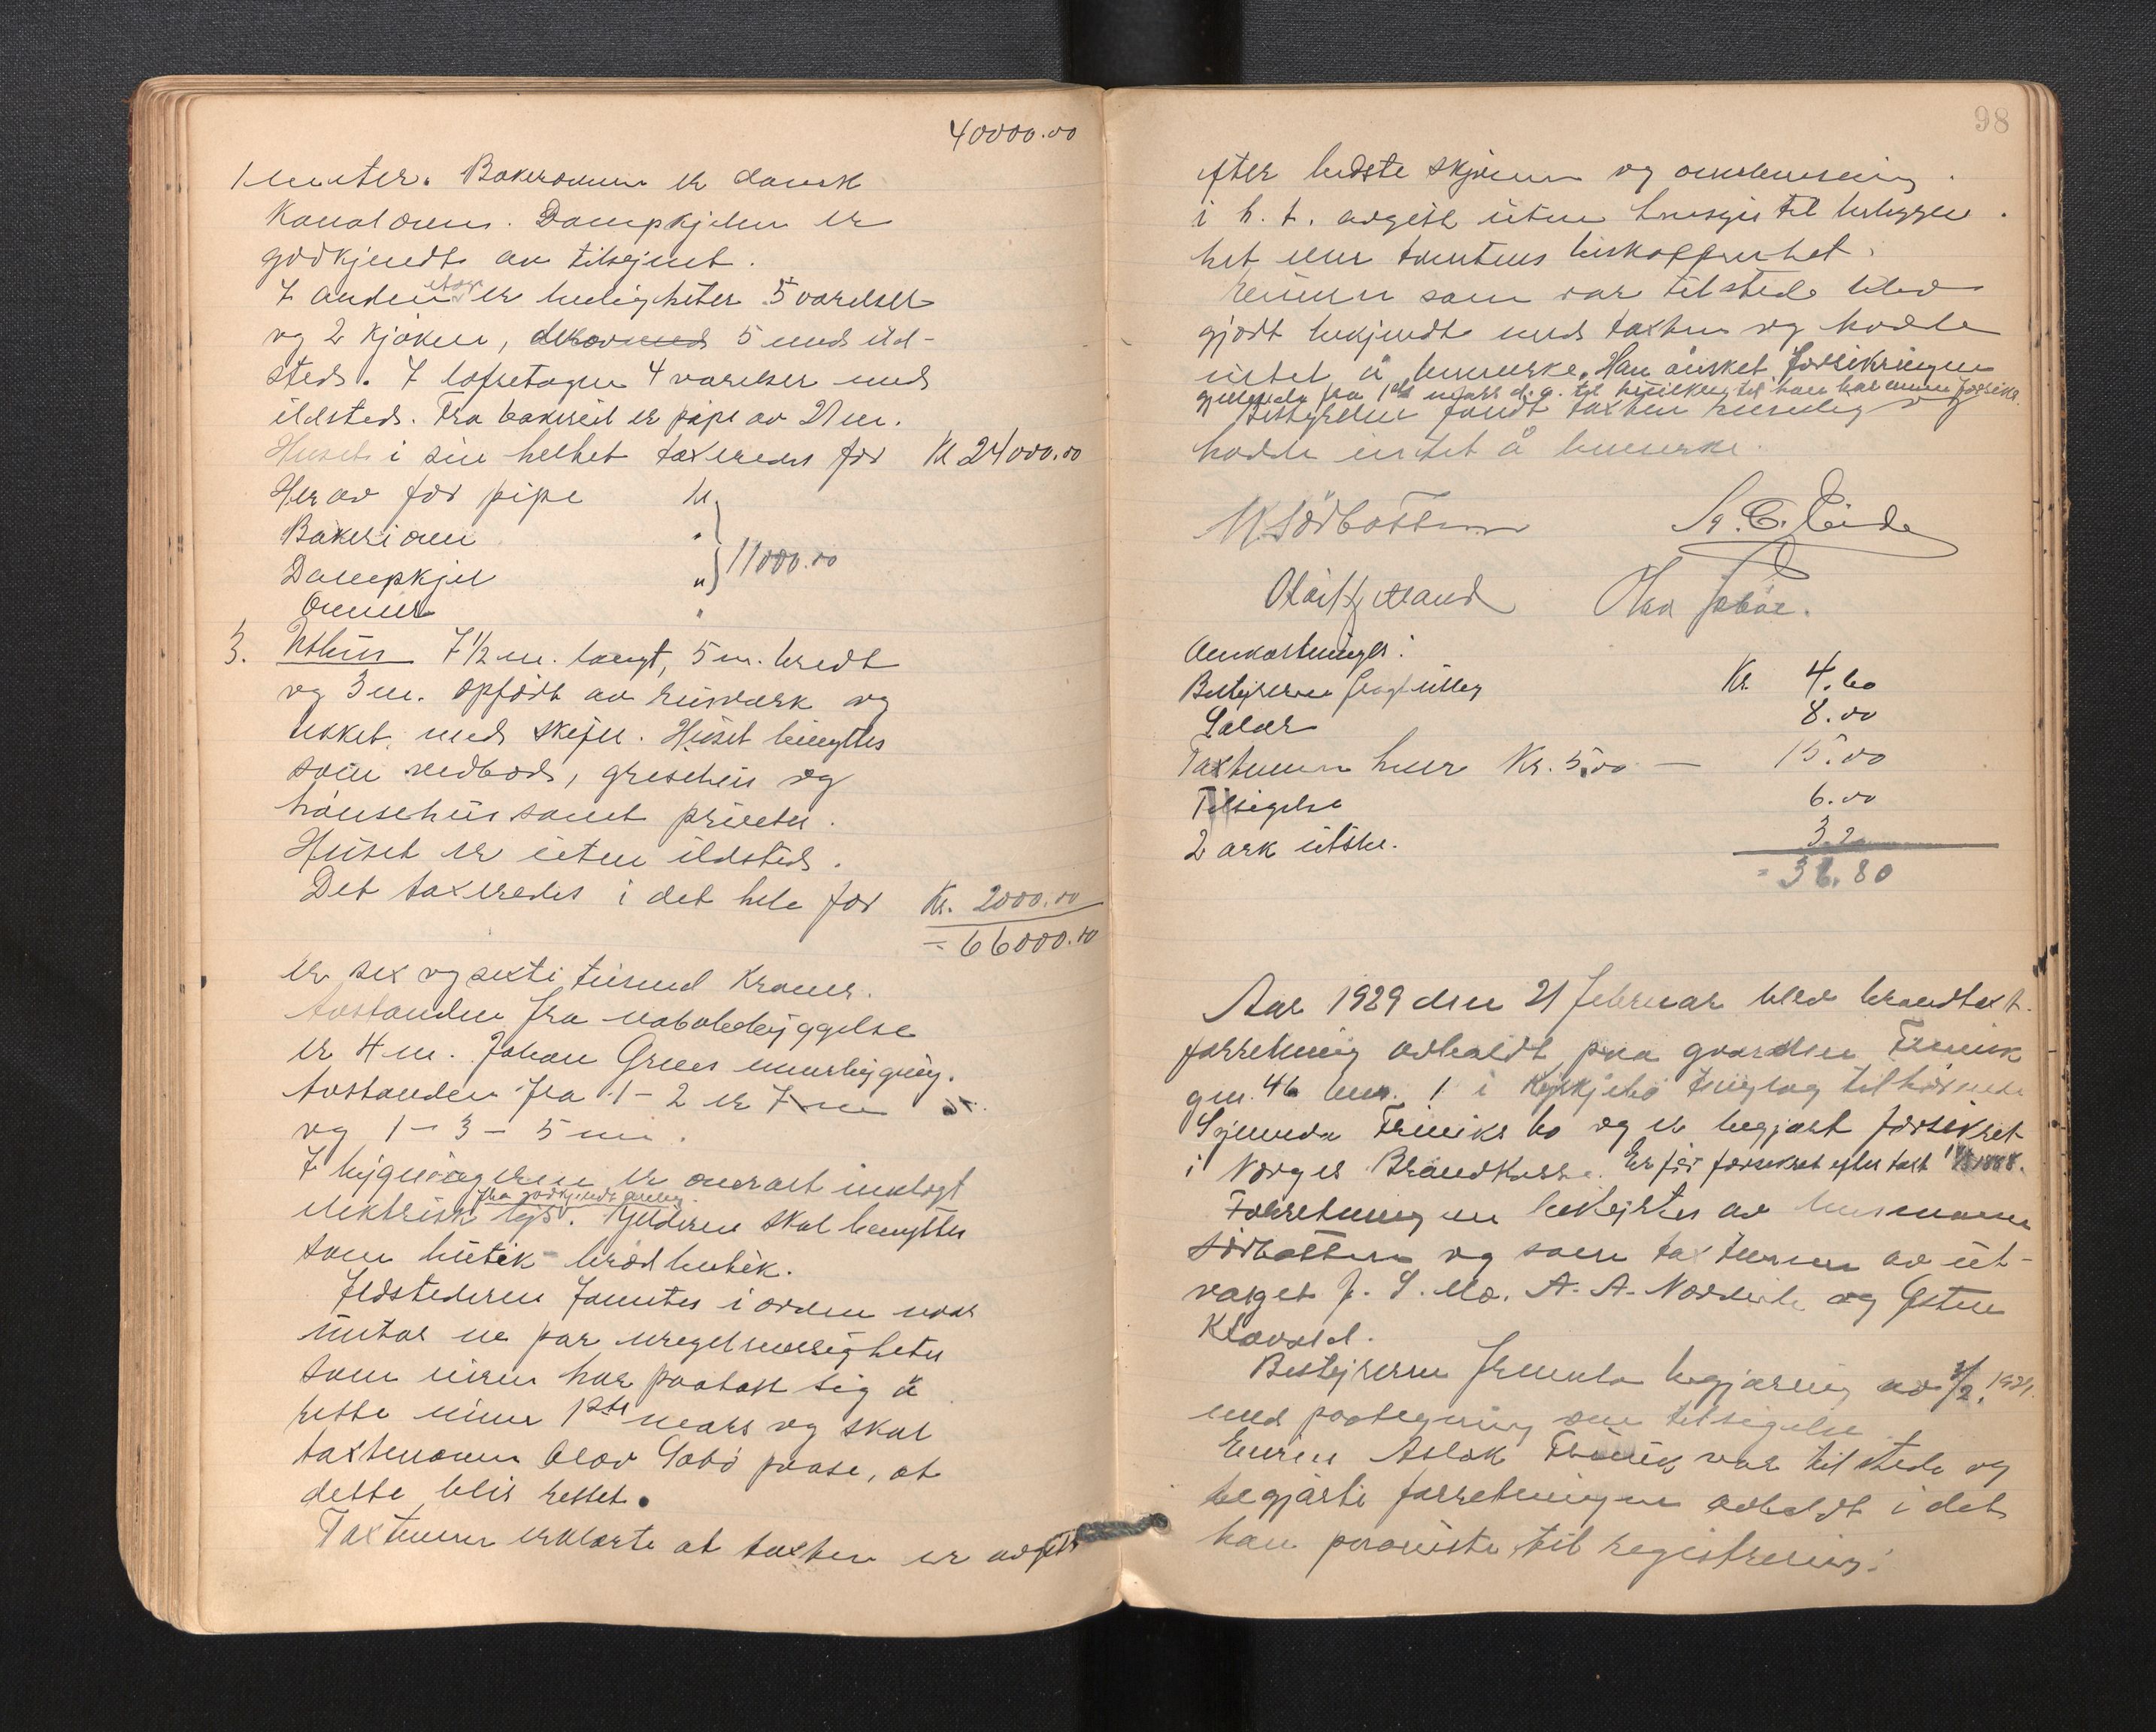 40000.00
1 meter. Bakerovnen er dansk
Kanalovn. Dampkjelen er
godkjendt av tilsynet.
I anden etage er leiligheter 5 værelser
og 2 kjøken, 5 med ild-
sted. I loftetagen 4 værelser med
ildsted. Fra bakeriet er pipe av 21 m.
Huset i sin helhet taxeredes for Kr 24000.00
Herav for pipe kr
Bakeriovn "
Dampkjel " 11000.00
Ovner "
3. Uthus 7 1/2 m. langt, 5 m. bredt
og 3 m. opført av reisverk og
tekket med skifer. Huset benyttes
som vedbod, grisehus og
hønsehus samt priveter.
Huset er uten ildsted.
Det taxeredes i det hele for Kr. 2000.00
= 66000.00
er sex og sexti tusind Kroner.
Avstanden fra nabobebyggelse
er 4 m. Johan Grues murbygning.
Avstanden fra 1 - 2 er 7 m
og 1 - 3 - 5 m.
I bygningerne er overalt innlagt
fra godkjendt anlæg
elektrisk lys. Kjelderen skal benyttes
som butik - brødbutik.
Ildstederne fantes i orden naar
untas ne par uregelmessigheter
som eieren har paatat sig å
rette innen 1ste mars og skal
taxtmann Olav Sæbø paase, at
dette blir rettet.
Taxtmenn erklærte at taxten er avgitt
98
efter bedste skjønn og overbevisning
i h. t. avgitt uten hensyn til beliggen
het eller tomtens beskaffenhet.
Eieren som var tilstede blev
gjort bekjendt med taxten og hadde
intet å bemerke. Han ønsket forsikringen
gjeldende fra 1ste mars d. a. til hvilken tid han har annen forsikr.
Bestyreren fandt taxten rimelig og
hadde intet å bemerke.
M Sørbotten
Olav Sæbøe.
Omkostninger:
Bestyreren Kr. 4.60
Salær 8.00
Taxtmenn hver Kr. 5.00 — 15.00
Tilsigelse 6.00
2 ark utskr. 3.20
= 36.80
Aar 1929 den 21 februar blev brandtaxt-
forretning avholdt paa gaarden Frøvik
gnr. 46 bnr. 1 i Kyrkjebø tinglag tilhørende
Sjumda Frøviks bo og er begjært forsikret
i Norges Brandkasse. Er før forsikret efter taxt 1888.
Forretningen bestyrtes av lensmann
Sørbotten og som taxtmenn av ut-
valget J. S. Mo. A. A. Nordeide og Østen
Klævold.
Bestyreren fremla begjæring av /2 1929.
med paategning om tilsigelse
Eieren Aslak Frøvik var tilstede og
begjærte forretningen avholdt i det
han paaviste til registrering: